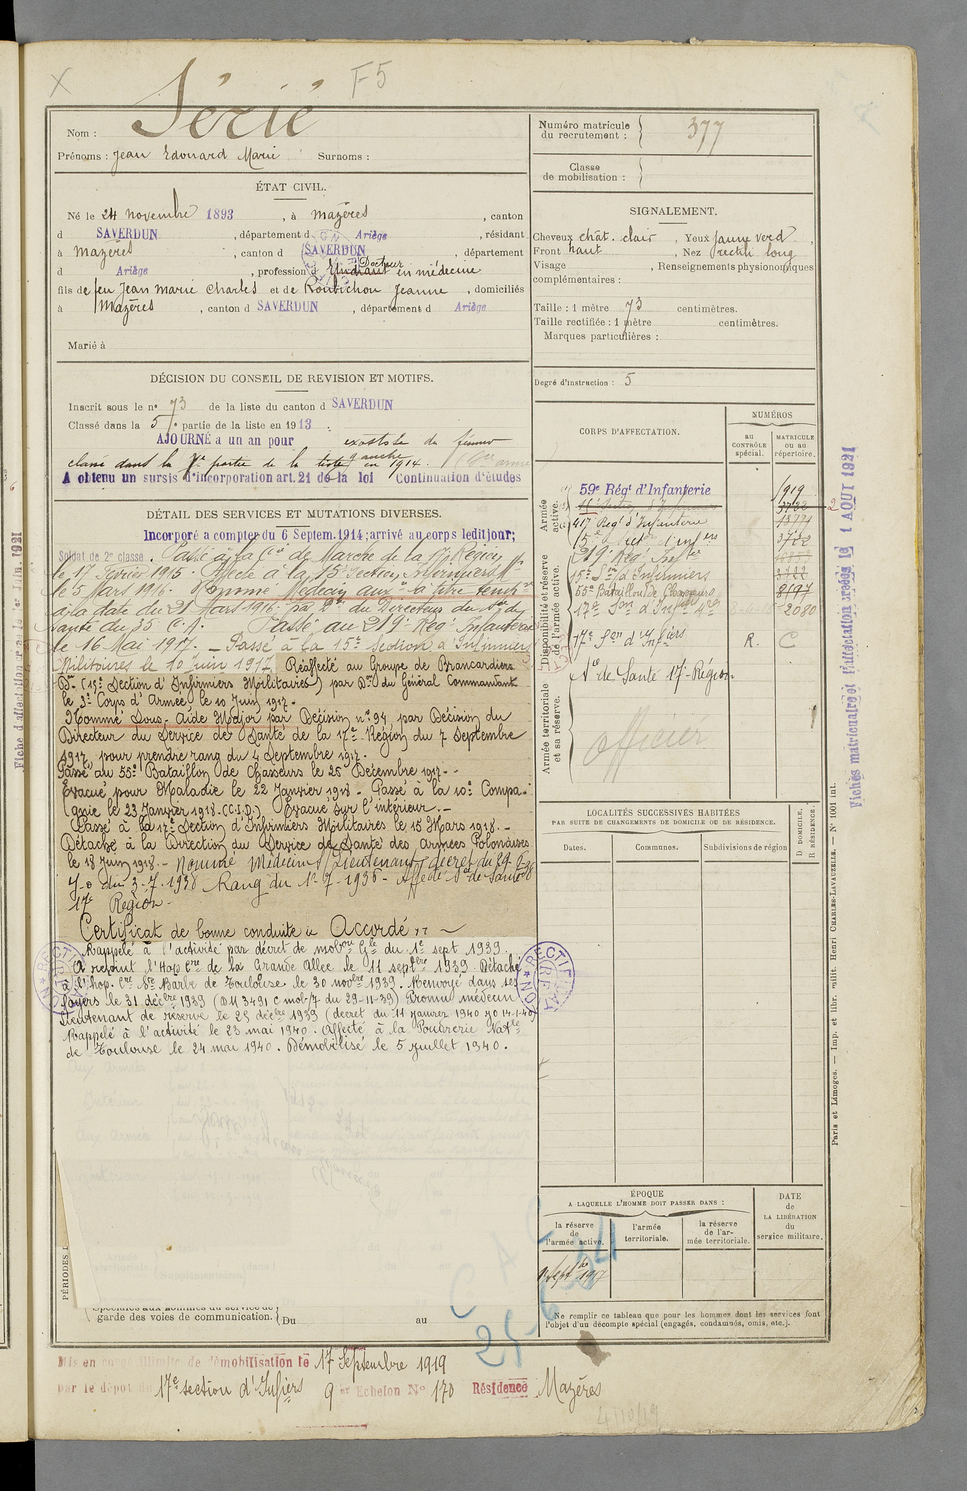 X
F5
Nom : Sérié
Prénoms : Jean Edouard Marie Surnoms :
Numéro matricule
du recrutement : 377
Classe
de mobilisation :
ÉTAT CIVIL.
Né le 24 novembre 1893, à Mazères, canton
d SAVERDUN, département d Ariège, résidant
à Mazères, canton d SAVERDUN, département
d Ariège, profession d Etudiant en médecine
Docteur
fils de feu Jean Marie Charles et de Roubichou Jeanne, domiciliés
à Mazères, canton d SAVERDUN, département d Ariège
Marié à
SIGNALEMENT.
Cheveux chât. clair, Yeux jaune verd,
Front haut, Nez rectil. long
Visage , Renseignements physionomiques
complémentaires :
Taille : 1 mètre 73 centimètres.
Taille rectifiée : 1 mètre centimètres.
Marques particulières :
Degré d'instruction : 5
DÉCISION DU CONSEIL DE REVISION ET MOTIFS.
Inscrit sous le no 73 de la liste du canton d SAVERDUN
Classé dans la 5e partie de la liste en 1913.
AJOURNÉ a un an pour exostose du fémur
gauche
classé dans la partie de la liste en 1914.
A obtenu un sursis d'incorporation art. 21 de la loi Continuation d'études
DÉTAIL DES SERVICES ET MUTATIONS DIVERSES.
Incorporé a compter du 6 Septem. 1914; arrivé au corps ledit jour;
Soldat de 2e classe. Passé à la Cie de Marche de la 17e Région
le 17 Février 1915. Affecté à la 15e Section Infirmiers Mres
le 5 Mars 1916. Nommé Médecin aux. à titre temp.re
à la date du 21 Mars 1916 par Don du Directeur du Sce de
Santé du 35 C.A. Passé au 219e Rég. Infanterie
le 16 Mai 1917. - Passé à la 15e Section d'Infirmiers
Militaires le 10 juin 1917. Réaffecté au Groupe de Brancardiers
Don (15e Section d'Infirmiers Militaires) par Don du Général Commandant
le 3e Corps d'Armée, le 10 Juin 1917.
Nommé Sous-Aide Major par Décision no 94 par Décision du
Directeur du Service de Santé de la 17e Région du 7 Septembre
1917, pour prendre rang du 4 Septembre 1917.
Passé au 55e Bataillon de Chasseurs le 25 Décembre 1917.-
Evacué pour Maladie le 22 Janvier 1918 - Passé à la 10e Compa-
gnie le 23 Janvier 1918. (C.I.D.) Evacué sur l'intérieur. -
Passé à la 17e Section d'Infirmiers Militaires le 15 Mars 1918. -
Détaché à la Direction du Service de Santé des Armées Polonaises
le 18 Juin 1918. - Nommé Médecin S/Lieutenant décret du 29.6.38
J.O du 3-7-1938 Rang du 1-7-1938 - Affecté Son de Santé
17e Région -
Certificat de bonne conduite : Accordé
Rappelé à l'activité par décret de mobon Gle du 1er sept 1939.
A rejoint l'Hop. Cre de la Grande Allée le 11 septbre 1939. Détaché
à l'hop. Cre Ste Barbe de Toulouse le 30 novbre 1939. Renvoyé dans ses
foyers le 31 décbre 1939 (DM 3491 C mob/7 du 29-11-39) Promu médecin
Lieutenant de réserve le 25 décbre 1939 (décret du 11 janvier 1940 JO 14-1-40)
Rappelé à l'activité le 23 mai 1940. Affecté à la Poudrerie Natle
de Toulouse le 24 mai 1940. Démobilisé le 5 juillet 1940.
RECTIFICAT
RECTIFICAT
CORPS D'AFFECTATION.
NUMÉROS
AU CONTRÔLE spécial.
MATRICULE ou au répertoire.
Armée active.
Disponibilité et réserve de l'armée active.
Armée territoriale et sa réserve.
59e Régt d'Infanterie 1919
417 Régt d'Infanterie
219e Rég. Infie
15e Son d'Infirmiers
55e Bataillon De Chasseurs 8197
17e Son d'Infers Mres 2080
17e Son d'Infiers R. C
Son de Santé 17e Région.
Officier
LOCALITÉS SUCCESSIVES HABITÉES
PAR SUITE DE CHANGEMENTS DE DOMICILE OU DE RÉSIDENCE.
D DOMICILE.
R RÉSIDENCE.
Dates. Communes. Subdivisions de région
ÉPOQUE
A LAQUELLE L'HOMME DOIT PASSER DANS :
la réserve de l'armée active.
l'armée territoriale.
la réserve de l'armée territoriale.
DATE
de
LA LIBÉRATION
du
service militaire.
Ne remplir ce tableau que pour les hommes dont les services font
l'objet d'un décompte spécial (engagés, condamnés, omis, etc.).
PÉRIODES
Spéciales aux hommes du service de
garde des voies de communication. Du au
Mis en congé illimité de démobilisation le 17 Septembre 1919
par le dépôt du 17e section d'Infiers 9e Echelon No 170 Résidence Mazères
Paris et Limoges. — Imp. et libr. milit. Henri CHARLES-LAVAUZELLE. — No 1001 int.
Fiches matriculaire et d'affectation créées le 1 AOUT 1921